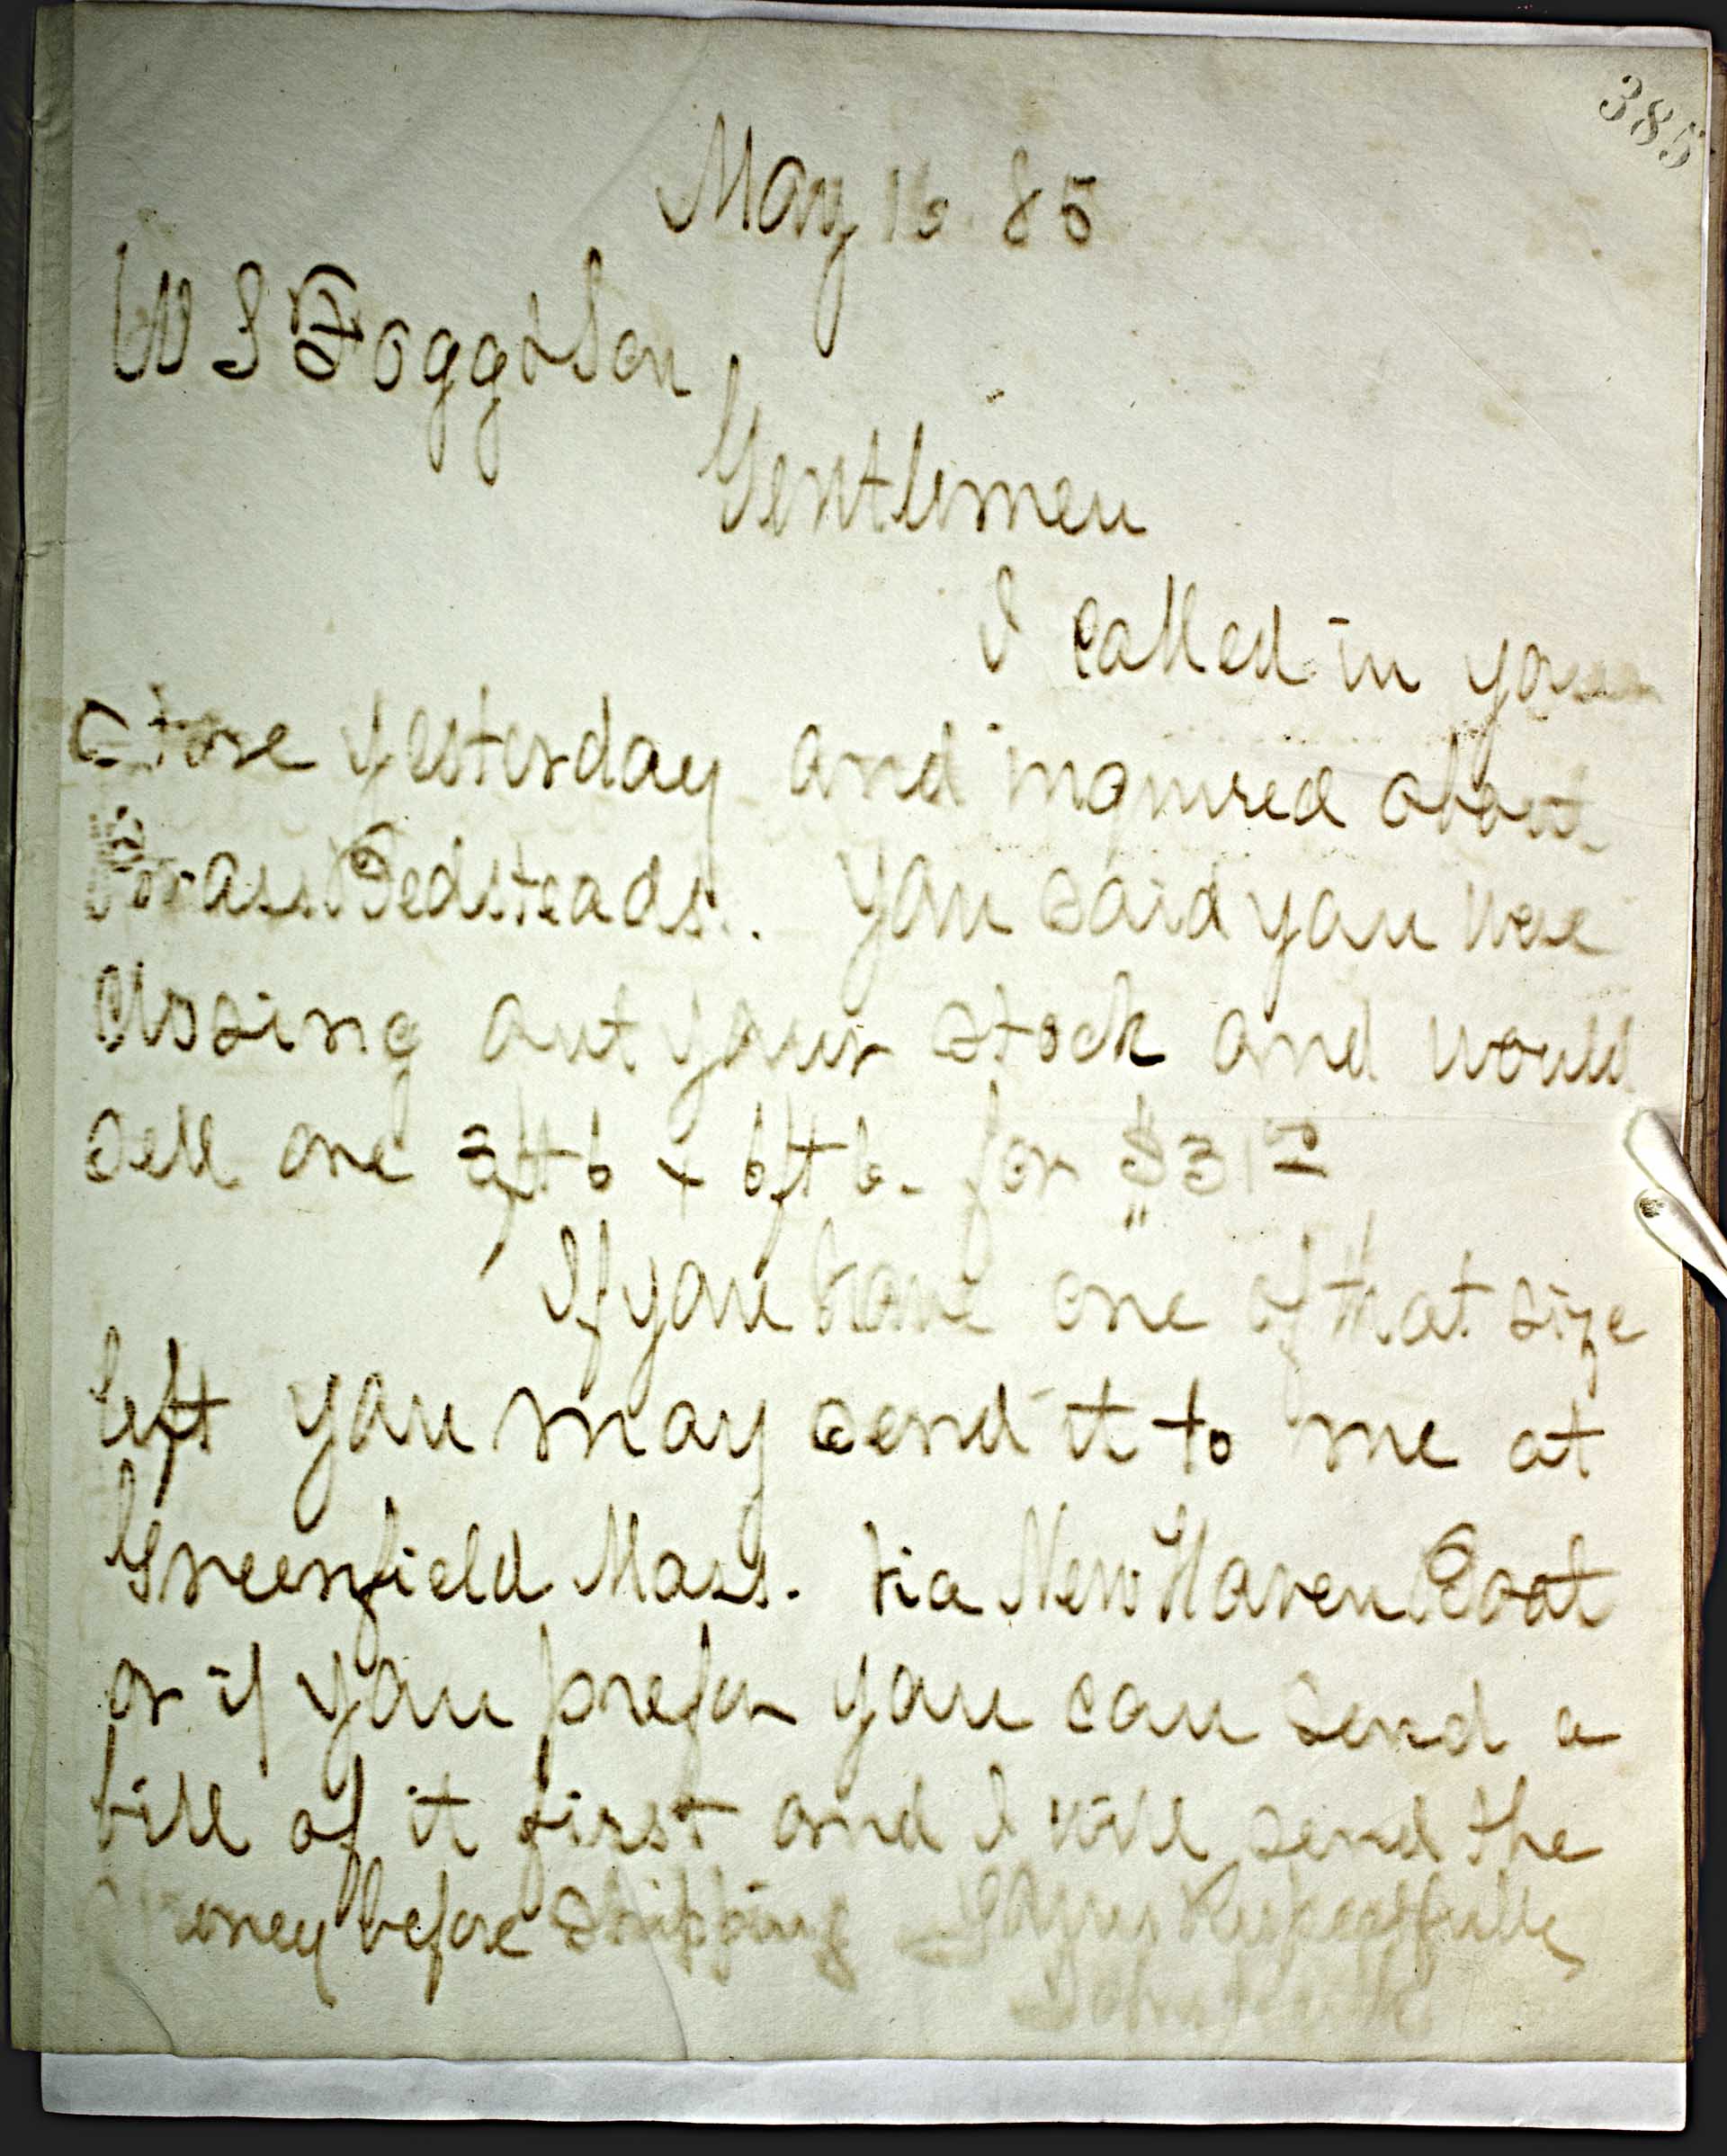 385
May 16 85
W S Fogg & Son
Gentlemen
I called in your
Store yesterday and inquired about
Brass Bedsteads. You said you were
closing out your stock and would
sell one 3ft 6 x 6ft 6. for $31
If you have one of that size
left you may send it to me at
Greenfield Mass. via New Haven Boat
or if you prefer you can send a
bill of it first and I will send the
money before shipping Yours Respectfully
John